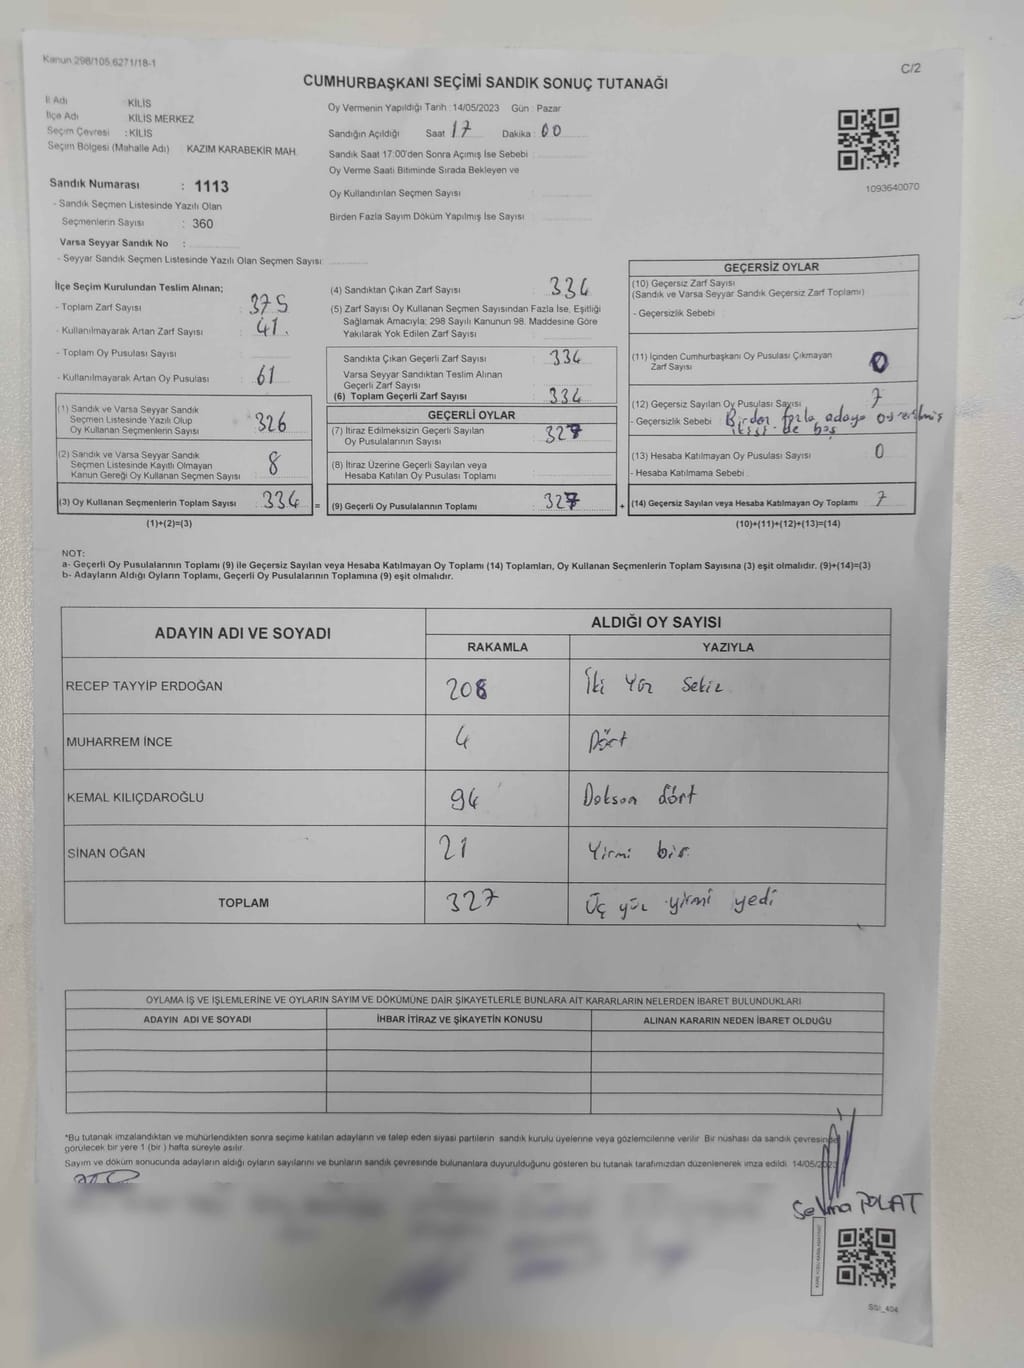 Kanun 298/105,6271/18-1
C/2
CUMHURBAŞKANI SEÇİMİ SANDIK SONUÇ TUTANAĞI
İl Adı KİLİS
İlçe Adı KİLİS MERKEZ
Seçim Çevresi : KİLİS
Seçim Bölgesi (Mahalle Adı) KAZIM KARABEKİR MAH.
Oy Vermenin Yapıldığı Tarih : 14/05/2023 Gün : Pazar
Sandığın Açıldığı Saat 17 Dakika : 00
Sandık Saat 17:00'den Sonra Açımış İse Sebebi :
Oy Verme Saati Bitiminde Sırada Bekleyen ve
Oy Kullandırılan Seçmen Sayısı
Birden Fazla Sayım Döküm Yapılmış İse Sayısı
1093640070
Sandık Numarası : 1113
- Sandık Seçmen Listesinde Yazılı Olan
Seçmenlerin Sayısı : 360
Varsa Seyyar Sandık No :
- Seyyar Sandık Seçmen Listesinde Yazılı Olan Seçmen Sayısı
İlçe Seçim Kurulundan Teslim Alınan;
- Toplam Zarf Sayısı : 375
- Kullanılmayarak Artan Zarf Sayısı : 41.
- Toplam Oy Pusulası Sayısı :
- Kullanılmayarak Artan Oy Pusulası : 61
(1) Sandık ve Varsa Seyyar Sandık
Seçmen Listesinde Yazılı Olup
Oy Kullanan Seçmenlerin Sayısı : 326
(2) Sandık ve Varsa Seyyar Sandık
Seçmen Listesinde Kayıtlı Olmayan
Kanun Gereği Oy Kullanan Seçmen Sayısı : 8
(3) Oy Kullanan Seçmenlerin Toplam Sayısı : 334 =
(1)+(2)=(3)
(4) Sandıktan Çıkan Zarf Sayısı : 334
(5) Zarf Sayısı Oy Kullanan Seçmen Sayısından Fazla İse, Eşitliği
Sağlamak Amacıyla; 298 Sayılı Kanunun 98. Maddesine Göre
Yakılarak Yok Edilen Zarf Sayısı :
Sandıkta Çıkan Geçerli Zarf Sayısı : 334
Varsa Seyyar Sandıktan Teslim Alınan
Geçerli Zarf Sayısı :
(6) Toplam Geçerli Zarf Sayısı : 334
GEÇERLİ OYLAR
(7) İtiraz Edilmeksizin Geçerli Sayılan
Oy Pusulalarının Sayısı : 327
(8) İtiraz Üzerine Geçerli Sayılan veya
Hesaba Katılan Oy Pusulası Toplamı :
(9) Geçerli Oy Pusulalarının Toplamı : 327 +
GEÇERSİZ OYLAR
(10) Geçersiz Zarf Sayısı
(Sandık ve Varsa Seyyar Sandık Geçersiz Zarf Toplamı)
- Geçersizlik Sebebi :
(11) İçinden Cumhurbaşkanı Oy Pusulası Çıkmayan
Zarf Sayısı : 0
(12) Geçersiz Sayılan Oy Pusulası Sayısı 7
- Geçersizlik Sebebi Birden fazla adaya oy verilmiş
ikisi de boş
(13) Hesaba Katılmayan Oy Pusulası Sayısı : 0
- Hesaba Katılmama Sebebi :
(14) Geçersiz Sayılan veya Hesaba Katılmayan Oy Toplamı : 7
(10)+(11)+(12)+(13)=(14)
NOT:
a- Geçerli Oy Pusulalarının Toplamı (9) ile Geçersiz Sayılan veya Hesaba Katılmayan Oy Toplamı (14) Toplamları, Oy Kullanan Seçmenlerin Toplam Sayısına (3) eşit olmalıdır. (9)+(14)=(3)
b- Adayların Aldığı Oyların Toplamı, Geçerli Oy Pusulalarının Toplamına (9) eşit olmalıdır.
ADAYIN ADI VE SOYADI
ALDIĞI OY SAYISI
RAKAMLA YAZIYLA
RECEP TAYYİP ERDOĞAN 208 İki yüz sekiz
MUHARREM İNCE 4 Dört
KEMAL KILIÇDAROĞLU 94 Doksan dört
SİNAN OĞAN 21 Yirmi bir.
TOPLAM 327 Üç yüz yirmi yedi
OYLAMA İŞ VE İŞLEMLERİNE VE OYLARIN SAYIM VE DÖKÜMÜNE DAİR ŞİKAYETLERLE BUNLARA AİT KARARLARIN NELERDEN İBARET BULUNDUKLARI
ADAYIN ADI VE SOYADI İHBAR İTİRAZ VE ŞİKAYETİN KONUSU ALINAN KARARIN NEDEN İBARET OLDUĞU
*Bu tutanak imzalandıktan ve mühürlendikten sonra seçime katılan adayların ve talep eden siyasi partilerin sandık kurulu üyelerine veya gözlemcilerine verilir. Bir nüshası da sandık çevresinde
görülecek bir yere 1 (bir ) hafta süreyle asılır.
Sayım ve döküm sonucunda adayların aldığı oyların sayılarını ve bunların sandık çevresinde bulunanlara duyurulduğunu gösteren bu tutanak tarafımızdan düzenlenerek imza edildi. 14/05/2023
Selma POLAT
SSI_404